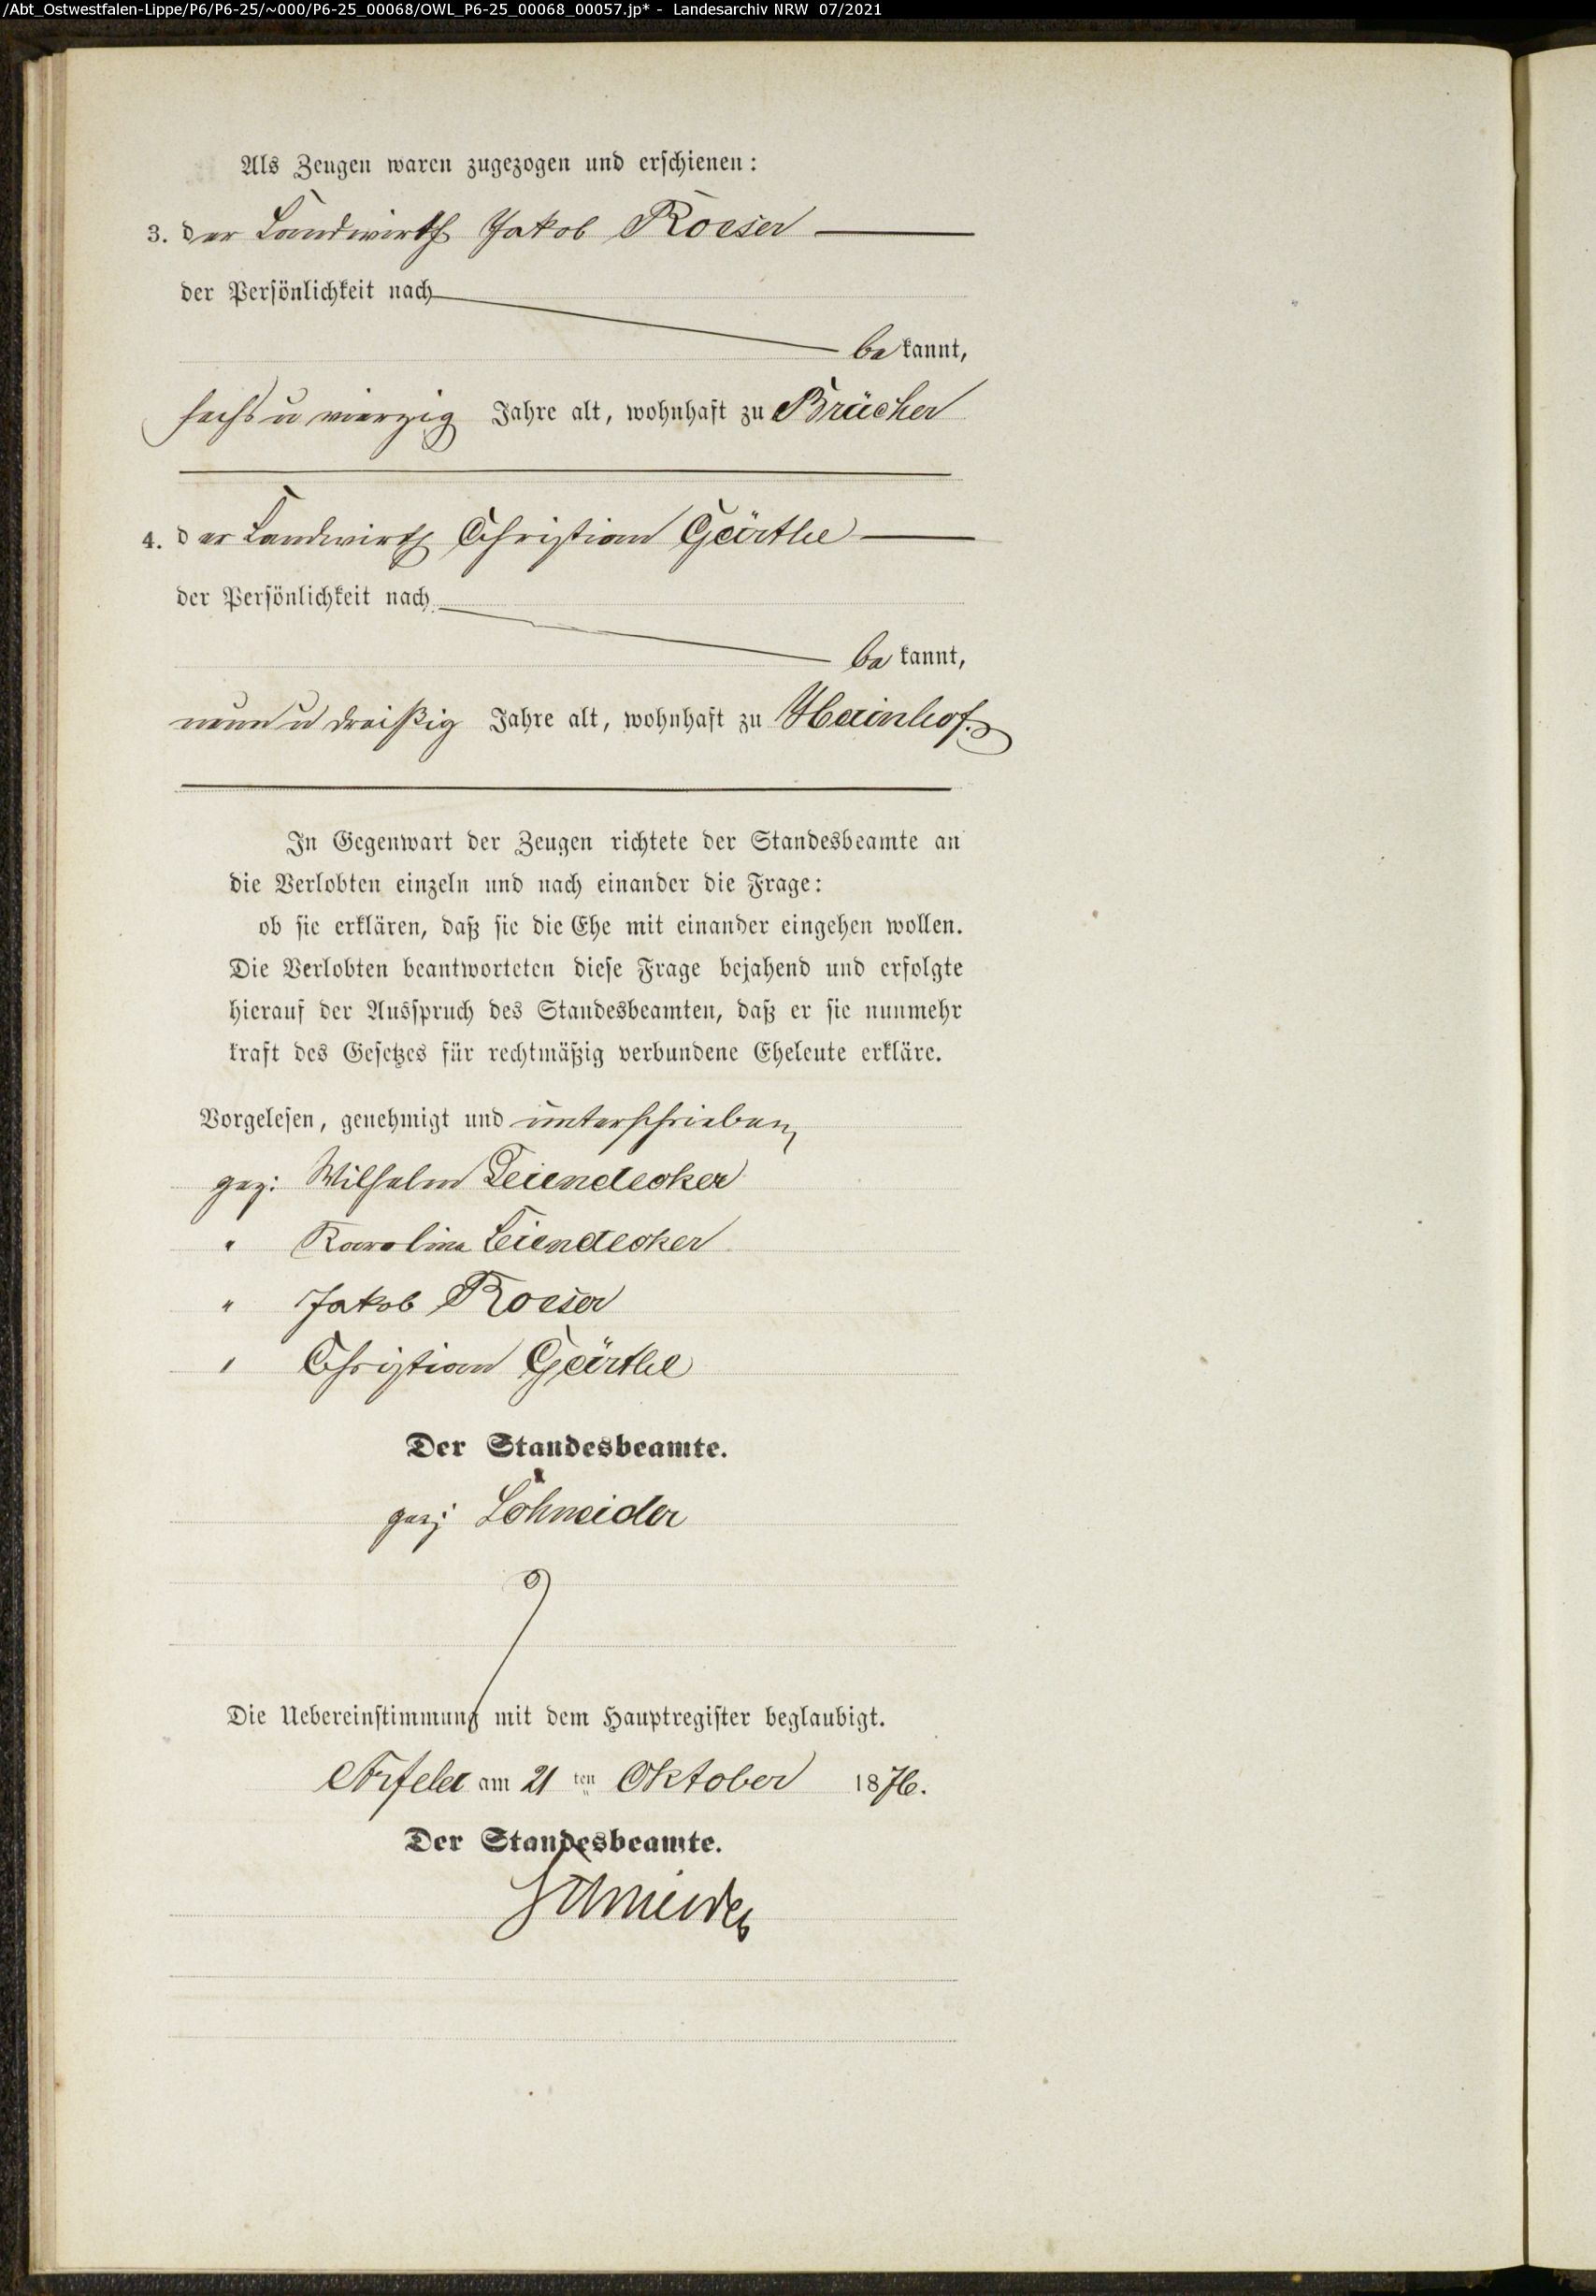 /Abt_Ostwestfalen-Lippe/P6/P6-25/~000/P6-25_00068/OWL_P6-25_00068_00057.jp* - Landesarchiv NRW 07/2021
Als Zeugen waren zugezogen und erschienen:
3. der Landwirth Jakob Roeser
der Persönlichkeit nach
be kannt,
sechs u vierzig Jahre alt, wohnhaft zu Brücher
4. der Landwirth Christian Gärthe
der Persönlichkeit nach
be kannt,
neun u dreißig Jahre alt, wohnhaft zu Hainhof.
In Gegenwart der Zeugen richtete der Standesbeamte an
die Verlobten einzeln und nach einander die Frage:
ob sie erklären, daß sie die Ehe mit einander eingehen wollen.
Die Verlobten beantworteten diese Frage bejahend und erfolgte
hierauf der Ausspruch des Standesbeamten, daß er sie nunmehr
kraft des Gesetzes für rechtmäßig verbundene Eheleute erkläre.
Vorgelesen, genehmigt und unterschrieben,
gez: Wilhelm Leiendecker
" Karolina Leiendecker
" Jakob Roeser
" Christian Gärthe
Der Standesbeamte.
gez: Schneider
Die Uebereinstimmung mit dem Hauptregister beglaubigt.
Arfeld am 21 ten Oktober 1876.
Der Standesbeamte.
Schneider